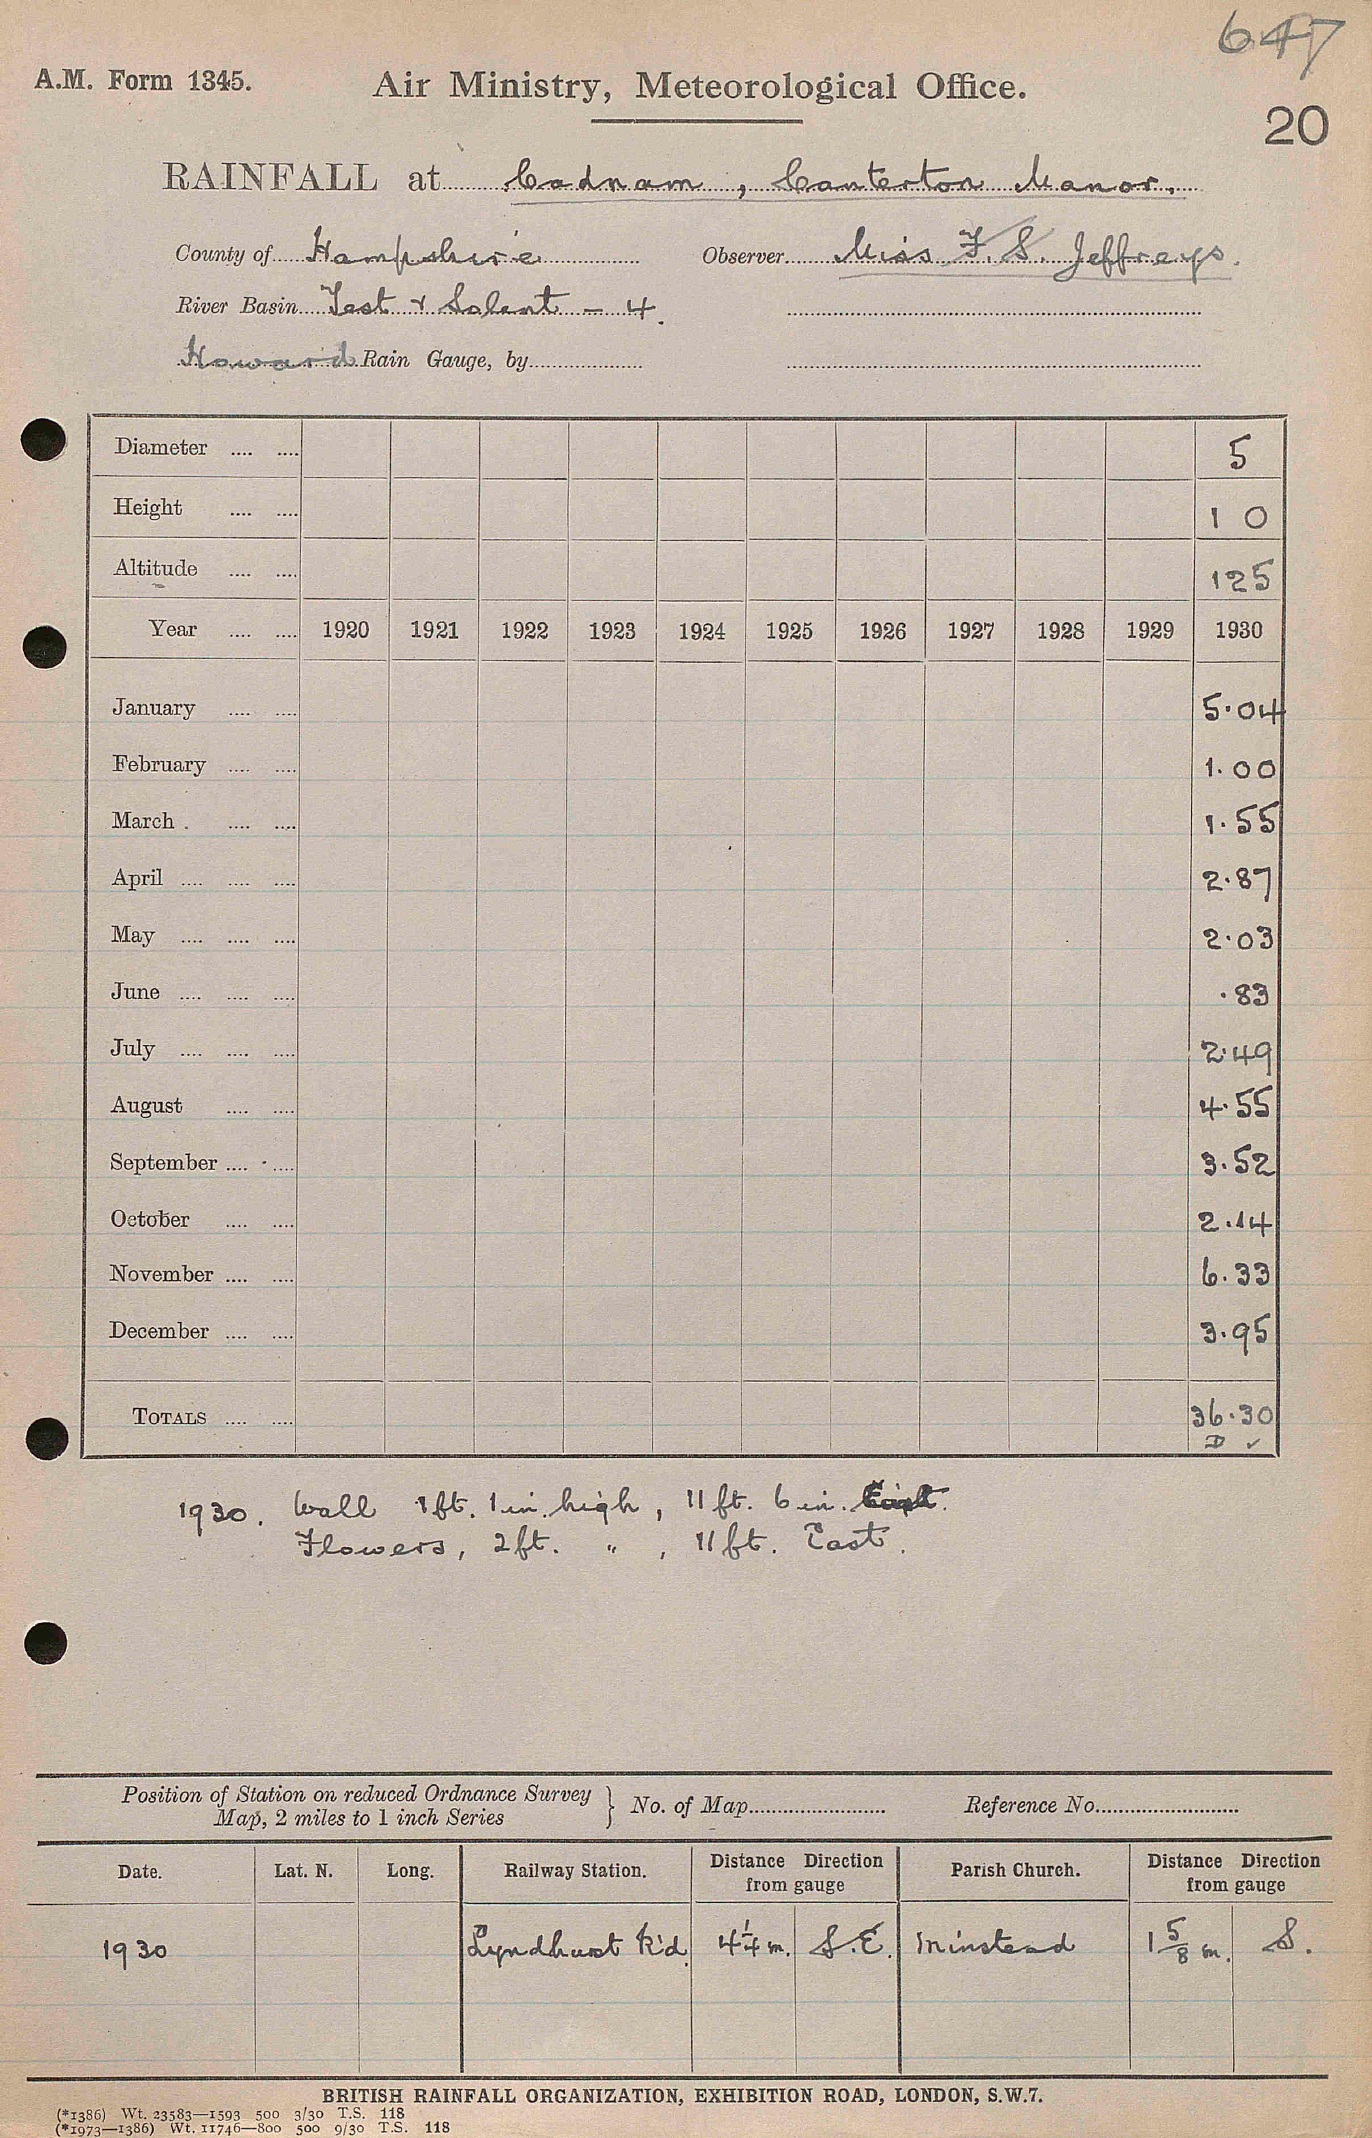 647
A.M. Form 1345. Air Ministry, Meteorological Office.
20
RAINFALL at Cadnam, Canterton Manor.
County of Hampshire Observer Miss F. S. Jeffreys.
River Basin Test & Solent - 4.
Howard Rain Gauge, by
Diameter .... .... 5
Height .... .... 1 0
Altitude .... .... 125
Year .... .... 1920 1921 1922 1923 1924 1925 1926 1927 1928 1929 1930
January .... .... 5.04
February .... .... 1.00
March .... .... 1.55
April .... .... .... 2.87
May .... .... .... 2.03
June .... .... .... .83
July .... .... .... 2.49
August .... .... 4.55
September .... .... 3.52
October .... .... 2.14
November .... .... 6.33
December .... .... 3.95
TOTALS .... .... 36.30
D ✓
1930. Wall 1 ft. 1 in. high, 11 ft. 6 in. East.
Flowers, 2 ft. " , 11 ft. East.
Position of Station on reduced Ordnance Survey
Map, 2 miles to 1 inch Series } No. of Map Reference No.
Date. Lat. N. Long. Railway Station. Distance Direction from gauge Parish Church. Distance Direction from gauge
1930 Lyndhurst R'd. 4 1/4 m. S.E. Minstead 1 5/8 m. S.
BRITISH RAINFALL ORGANIZATION, EXHIBITION ROAD, LONDON, S.W.7.
(*1386) Wt. 23583—1593 500 3/30 T.S. 118
(*1973—1386) Wt. 11746—800 500 9/30 T.S. 118